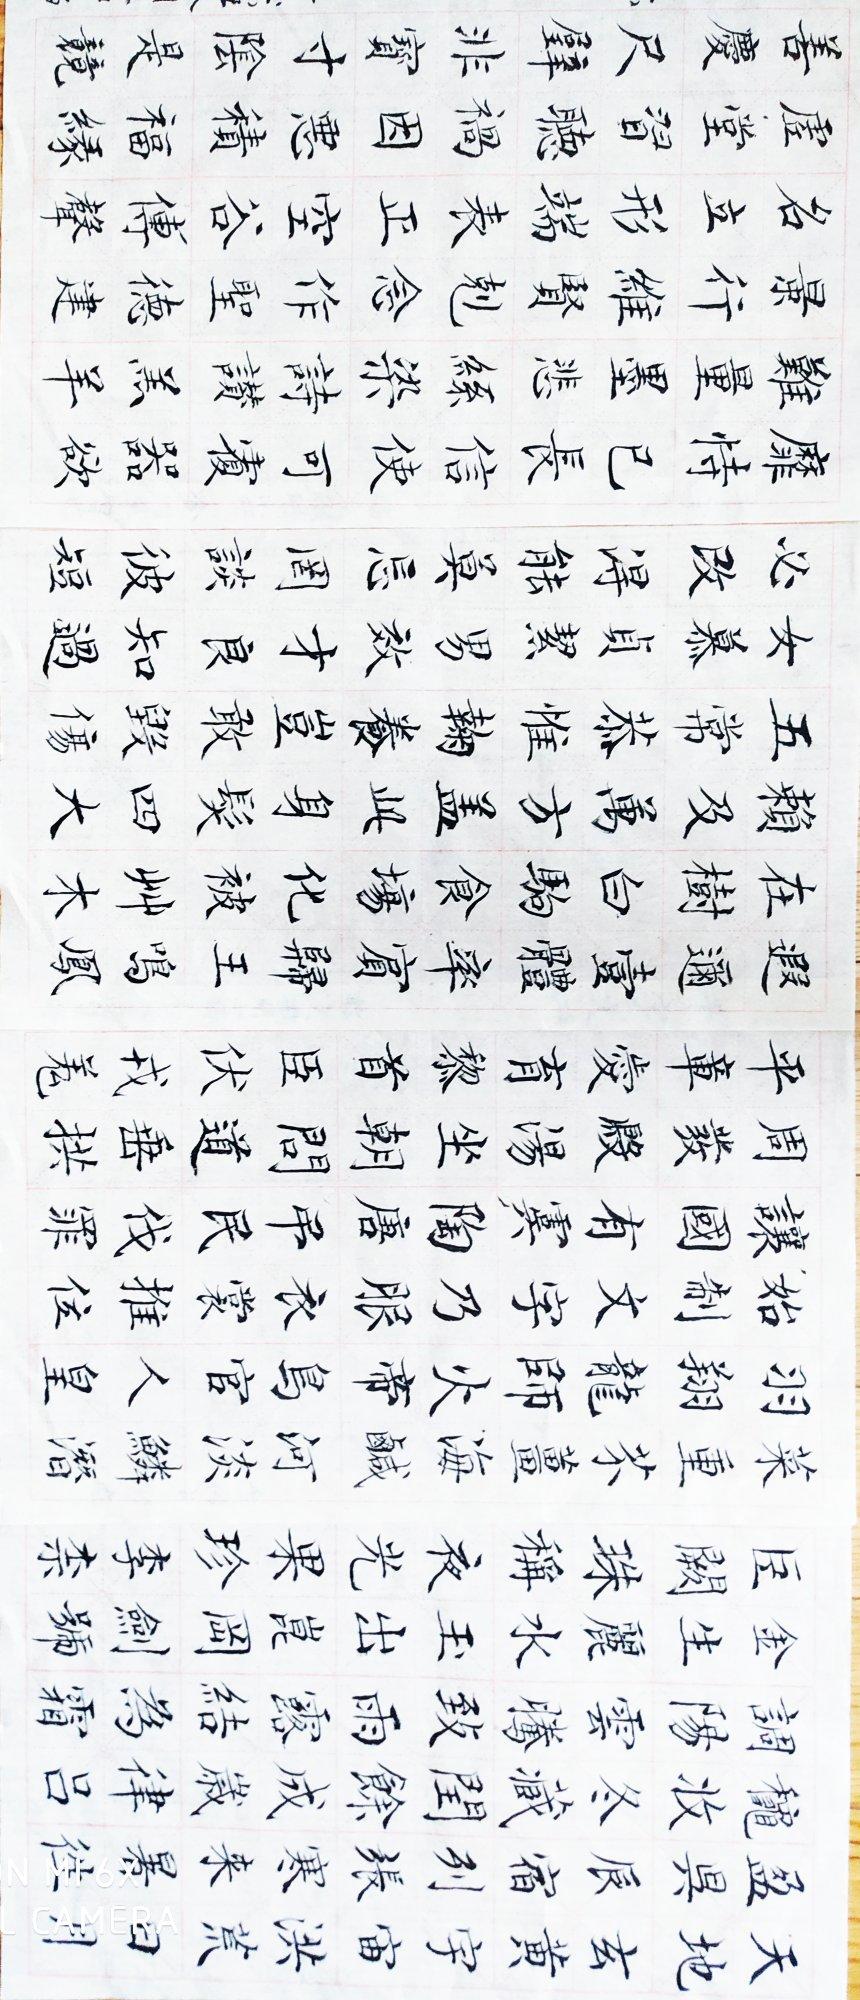 天地玄黃宇宙洪荒日月
盈昃辰宿列張寒来暑往
龝收冬藏閏餘成歲律呂
調陽雲騰致雨露結為霜
金生麗水玉出崑岡劍號
巨闕珠稱夜光果珍李柰
菜重芥薑海鹹河淡鱗潛
羽翔龍師火帝鳥官人皇
始制文字乃服衣裳推位
讓國有虞陶唐弔民伐罪
周發殷湯坐朝問道垂拱
平章愛育黎首臣伏戎羌
遐邇壹體率賓歸王鳴鳳
在樹白駒食場化被艸木
賴及萬方盖此身髮四大
五常恭惟鞠養豈敢毀傷
女慕貞絜男效才良知過
必改得能莫忘罔談彼短
靡恃己長信使可覆器欲
難量墨悲絲染詩讃羔羊
景行維賢剋念作聖德建
名立形端表正空谷傳聲
虛堂習聽禍因悪積福緣
善慶尺璧非寶寸陰是競
ON MI 6X
L CAMERA